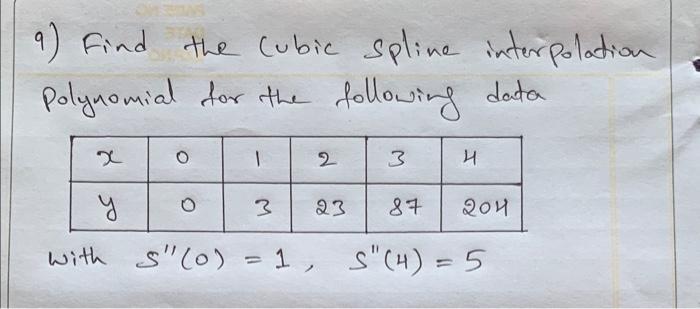 9) Find the Cubic Spline interpolation
Polynomial for the following data
x 0 1 2 3 4
y 0 3 23 87 204
With S"(0) = 1, S"(4) = 5